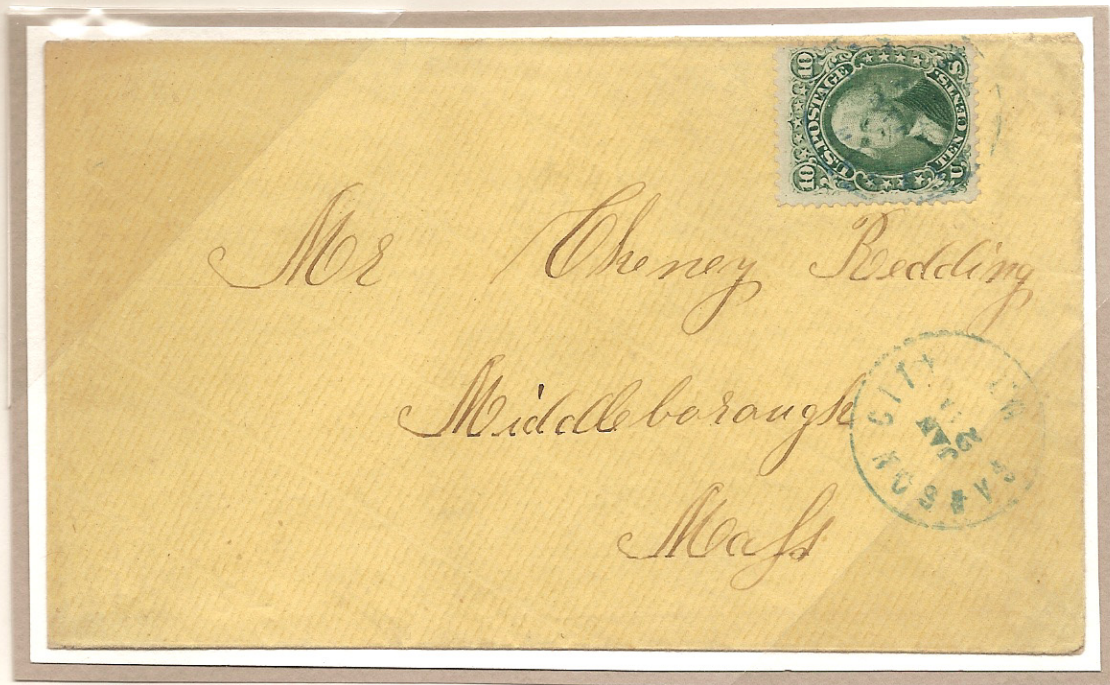 10 U.S. POSTAGE 10
TEN CENTS.
U S
Mr Cheney Redding
Middleborough
Mass
CARSON CITY
JAN